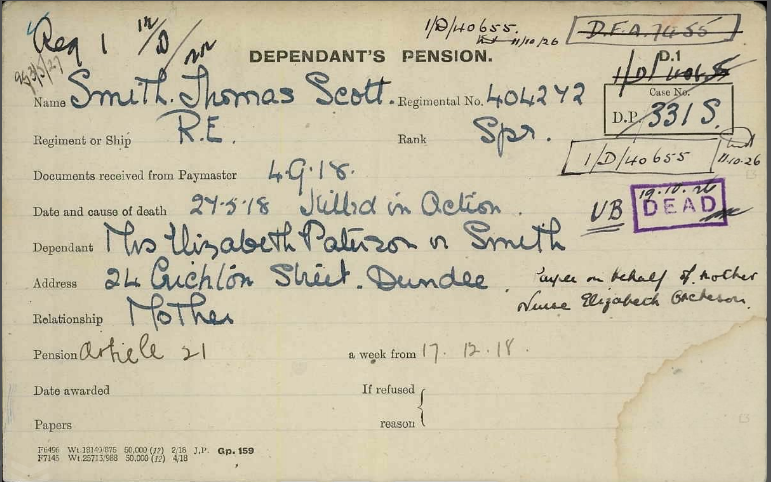 Req 1 1/D/
1/D/40655.
11/10/26
D.F.A. 7455
DEPENDANT'S PENSION.
D.1
1/D/40655
Name Smith. Thomas Scott. Regimental No. 404272
Case No.
D.P. 331 S.
Regiment or Ship R.E. Rank Spr.
1/D/40655 11.10.26
Documents received from Paymaster 4.9.18.
19.10.26
Date and cause of death 27.5.18 Killed in Action.
UB DEAD
Dependant Mrs Elizabeth Paterson or Smith
Address 24 Crichton Street. Dundee.
Payee on behalf of mother
Nurse Elizabeth
Relationship Mother
Pension Article 21 a week from 17.12.18.
Date awarded If refused
Papers reason
F6496 Wt.18149/876 50,000 (12) 2/18 J.P. Gp. 159
F7145 Wt.25713/988 50,000 (12) 4/18